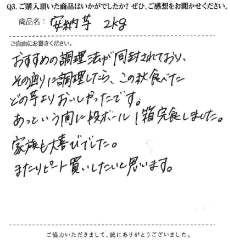 Q3. ご購入頂いた商品はいかがでしたか？ぜひ、ご感想をお聞かせください。
商品名： 安納芋 2kg
ご自由にお書きください。
おすすめの調理法が同封されており、
その通りに調理したら、この秋食べた
どの芋よりおいしかったです。
あっという間に段ボール1箱完食しました。
家族も大喜びでした。
またリピート買いしたいと思います。
ご協力いただきまして、誠にありがとうございました。